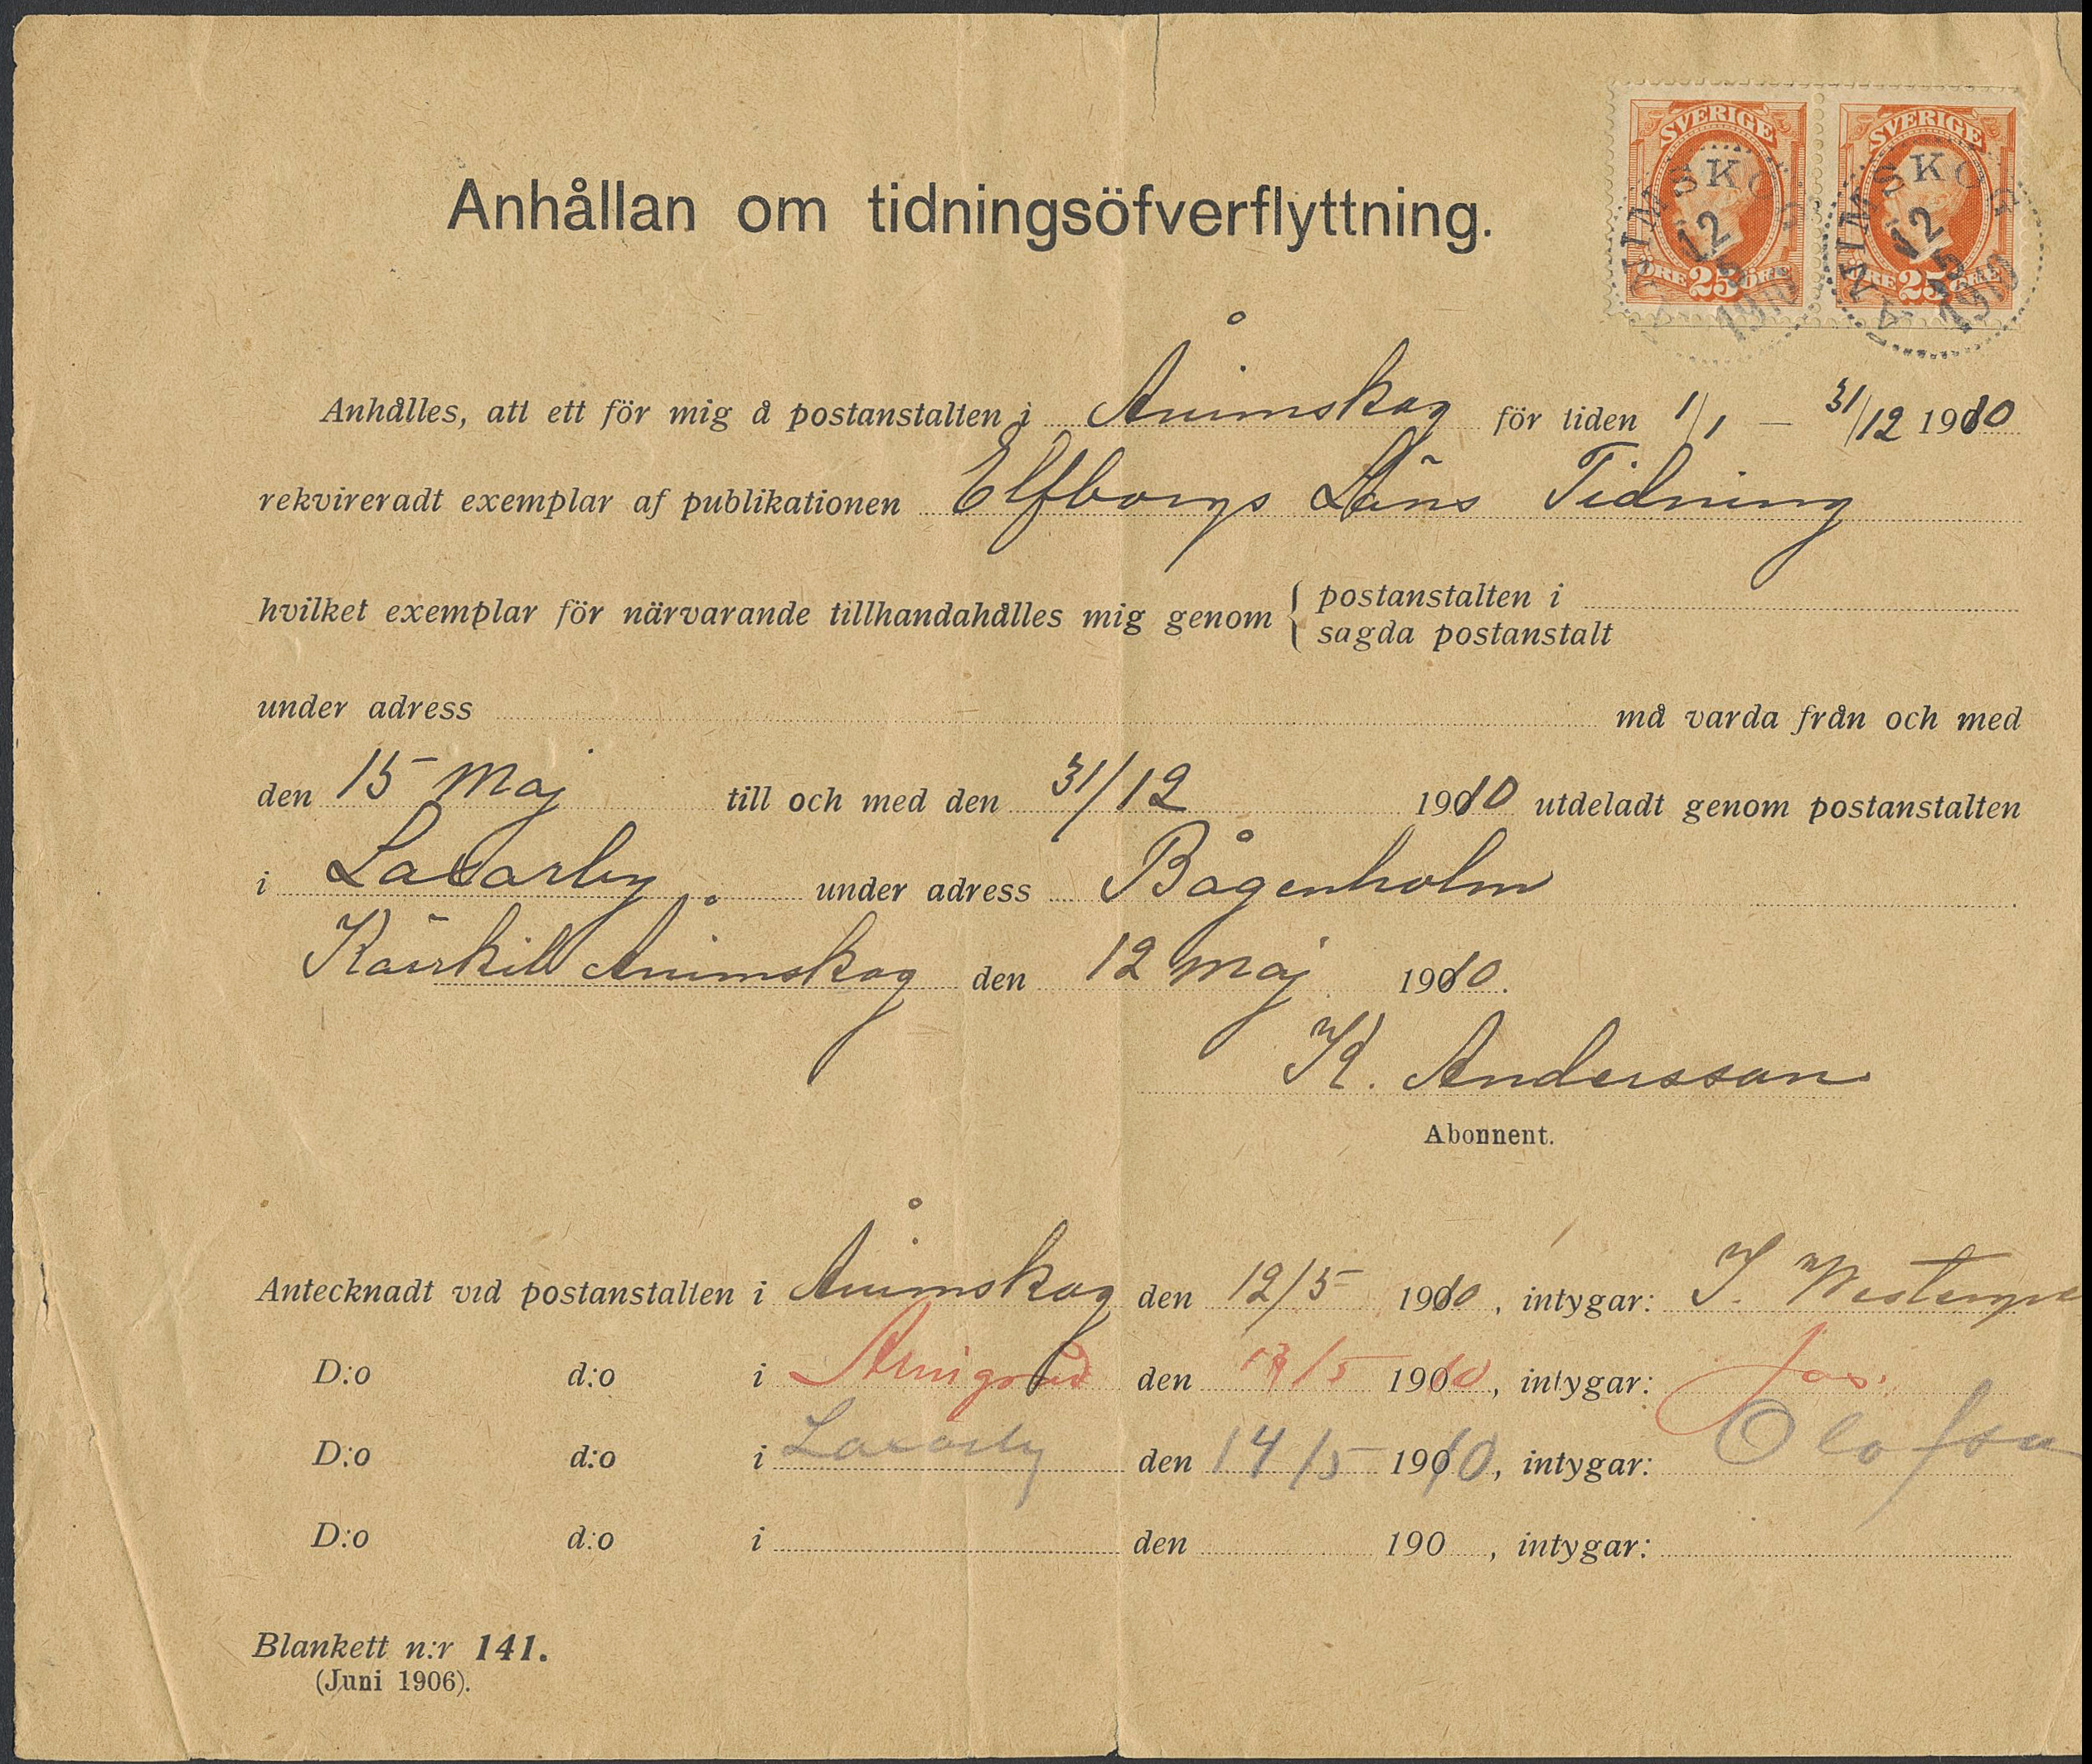 SVERIGE SVERIGE
ÅNIMSKOG ÅNIMSKOG
12 5 1910 12 5 1910
ÖRE 25 ÖRE ÖRE 25 ÖRE
Anhållan om tidningsöfverflyttning.
Anhålles, att ett för mig å postanstalten i Ånimskog för tiden 1/1 – 31/12 1910
rekvireradt exemplar af publikationen Elfborgs Läns Tidning
hvilket exemplar för närvarande tillhandahålles mig genom { postanstalten i
sagda postanstalt
under adress må varda från och med
den 15 Maj till och med den 31/12 1910 utdeladt genom postanstalten
i Laxarby under adress Bågenholm
Kärrkill Ånimskog den 12 Maj 1910.
K. Andersson
Abonnent.
Antecknadt vid postanstalten i Ånimskog den 12/5 1910, intygar: J.
D:o d:o i den /5 1910, intygar:
D:o d:o i Laxarby den 14/5 1910, intygar: Olofsu
D:o d:o i den 190 , intygar:
Blankett n:r 141.
(Juni 1906).